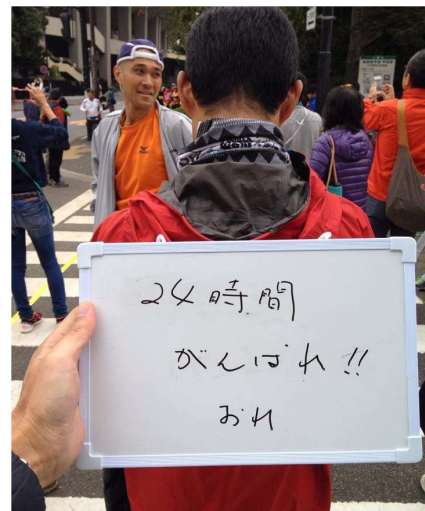 24時間
がんばれ!!
おれ